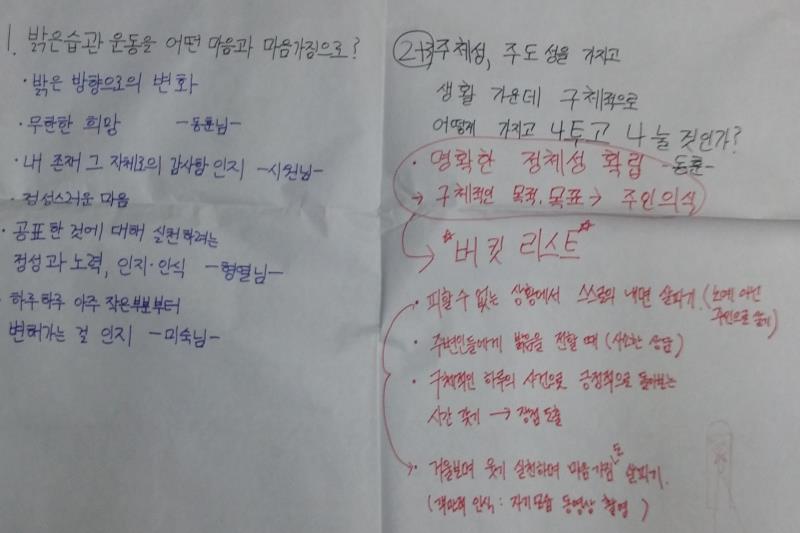 1. 밝은습관 운동을 어떤 마음과 마음가짐으로?
· 밝은 방향으로의 변화
· 무한한 희망 -동훈님-
· 내 존재 그 자체로의 감사함 인지 -시원님-
· 정성스러운 마음
· 공표한 것에 대해 실천하려는
정성과 노력, 인지·인식 -형열님-
· 하루하루 아주 작은부분부터
변해가는 걸 인지 -미숙님-
2+3 주체성, 주도성을 가지고
생활 가운데 구체적으로
어떻게 가지고 나투고 나눌 것인가?
· 명확한 정체성 확립 -동훈-
→ 구체적인 목적, 목표 → 주인의식
*버킷 리스트*
· 피할 수 없는 상황에서 스스로의 내면 살피기. (노예 아닌
주인으로 살기)
· 주변인들에게 밝음을 전할 때 (사소한 상담)
· 구체적인 하루의 사건으로 긍정적으로 돌아보는
시간 갖기 → 장점 도출
· 거울보며 웃기 실천하며 마음가짐도 살피기.
(객관적 인식 : 자기모습 동영상 촬영)